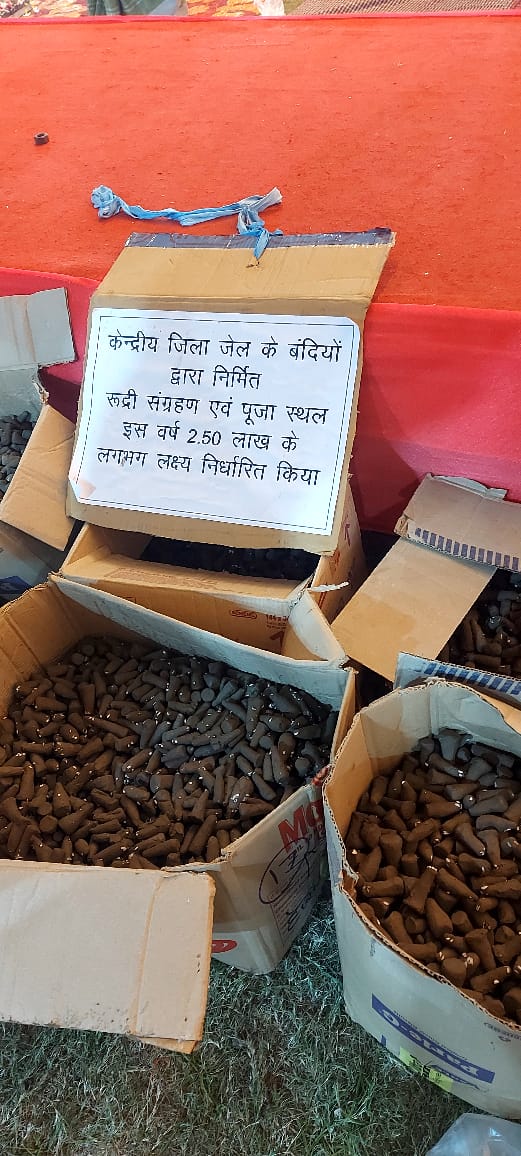 केन्द्रीय जिला जेल के बंदियों
द्वारा निर्मित
रूद्री संग्रहण एवं पूजा स्थल
इस वर्ष 2.50 लाख के
लगभग लक्ष्य निर्धारित किया